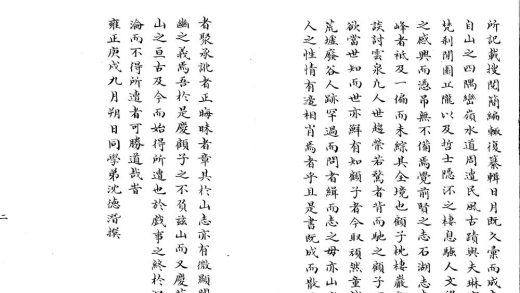 所記載搜閱簡編輙復纂輯日月既久彚而成
自山之四隅巒嶺水道周遭民風古蹟與夫琳
梵刹閒園丘隴以及哲士隱沠之棲息騷人文
之感興而憑吊無不備焉覺前賢之志石湖志
峰者秪及一偏而未綜其全境也顧子枕棲巖
談討雲泉凡人世趨榮若騖者背而馳之顧子
欲當世知而世亦鮮有知顧子者今取頑然童
荒墟廢谷人跡罕過而問者緝而志之毋亦山
人之性情有遣相肖焉者乎且是書既成而散
者聚承訛者正晦昧者章其於山志亦有微顯
幽之義焉吾於是慶顧子之不負兹山而又慶
山之亘古及今而始得所遭也於戲事之終於
淪而不得所遭者可勝道哉旹
雍正庚戌九月朔日同學弟沈德潛撰
二